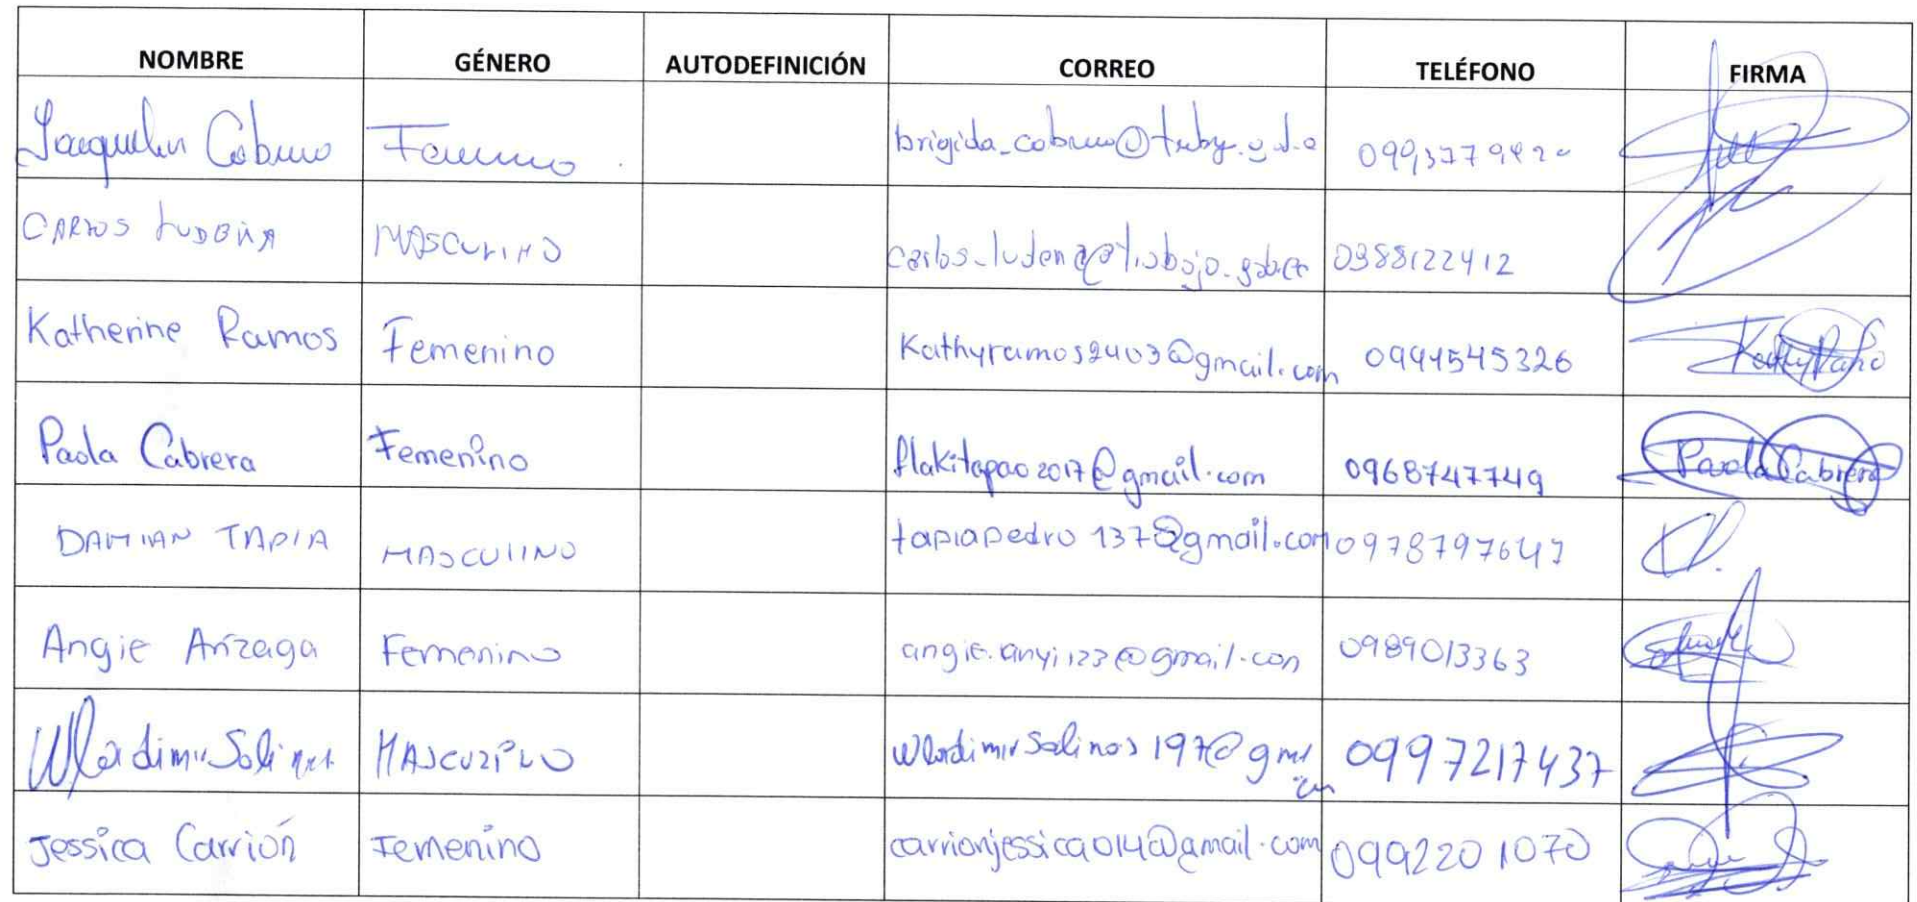 NOMBRE GÉNERO AUTODEFINICIÓN CORREO TELÉFONO FIRMA
Jaquelin Femenino
CARLOS LUDEÑA MASCULINO carlos_ludena@trabajo.gob.ec 0988122412
Katherine Ramos Femenino Kathyramos2403@gmail.com 0991545326 KathyRamo
Paola Cabrera Femenino flakitapao2017@gmail.com 0968747749 Paola Cabrera
DAMIAN TAPIA MASCULINO tapiapedro137@gmail.com 0978797647
Angie Arízaga Femenino angie.anyi123@gmail.con 0989013363
Wladimir Salinas MASCULINO 0997217437
Jessica Carrión Femenino carrionjessica014@gmail.com 0992201070